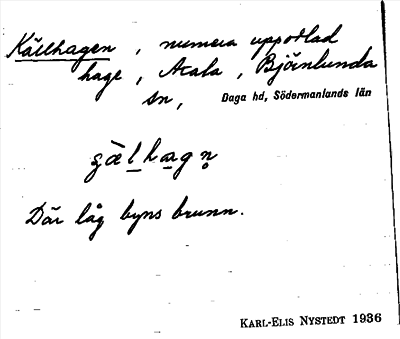 Källhagen, numera uppodlad
hage, Acala, Björnlunda
sn, Daga hd, Södermanlands län
Där låg byns brunn.
KARL-ELIS NYSTEDT 1936